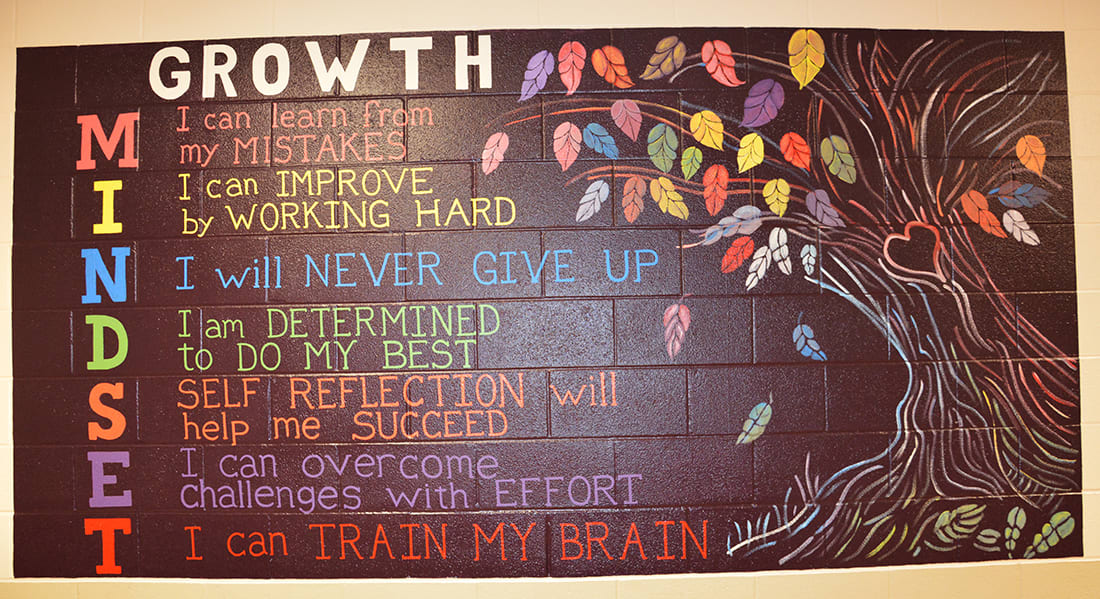 GROWTH
M I can learn from
my MISTAKES
I I can IMPROVE
by WORKING HARD
N I will NEVER GIVE UP
D I am DETERMINED
to DO MY BEST
S SELF REFLECTION will
help me SUCCEED
E I can overcome
challenges with EFFORT
T I can TRAIN MY BRAIN